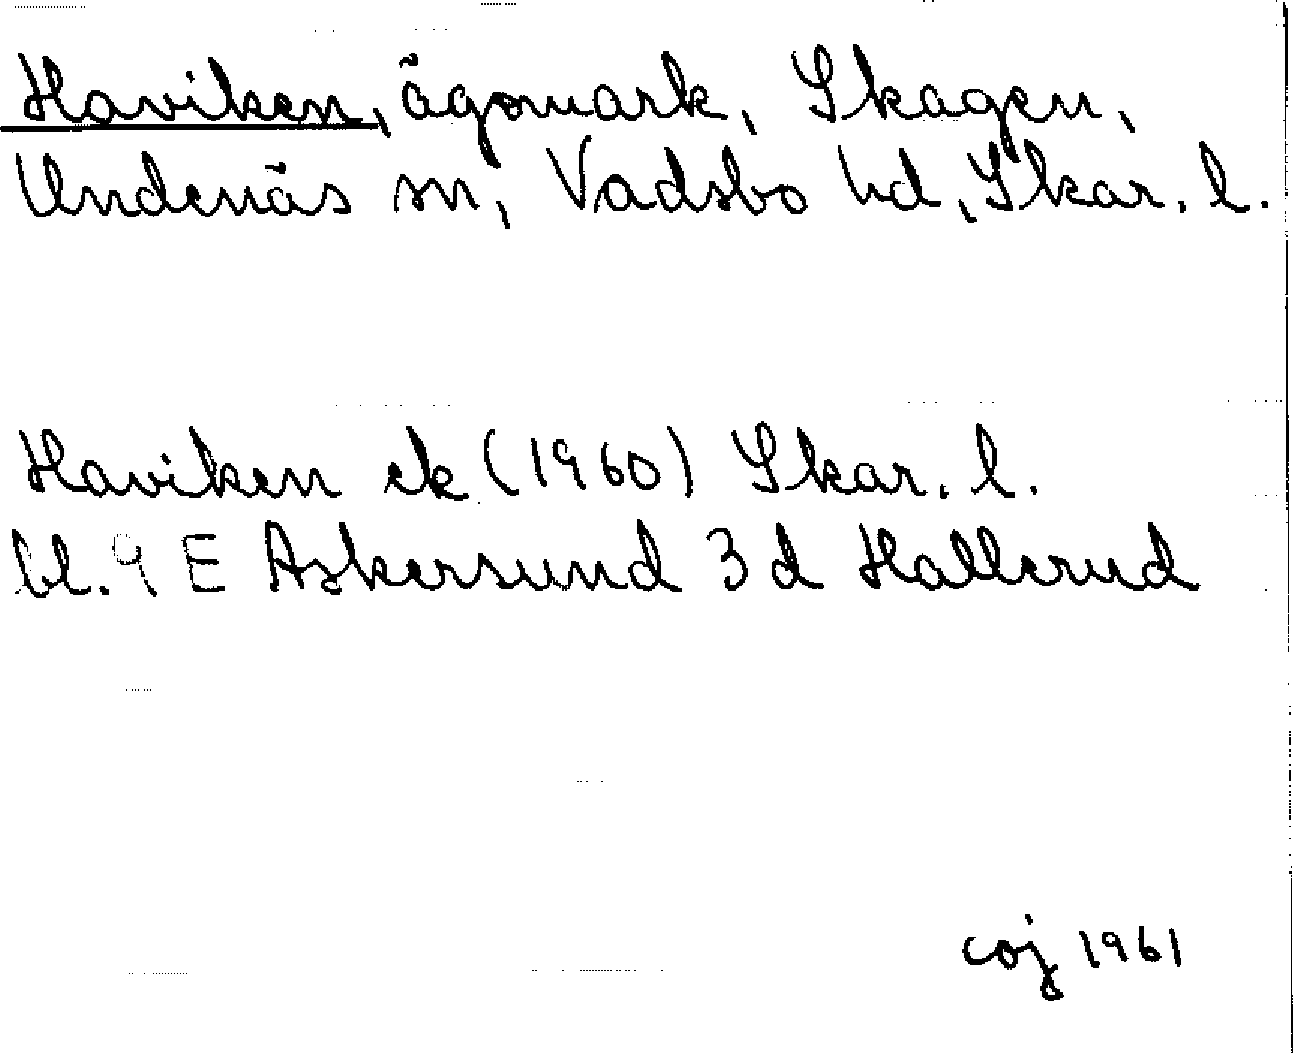 Haviken, ägomark, Skagen,
Undenäs sn, Vadsbo hd, Skar. l.
Haviken ek (1960) Skar. l.
bl. 9 E Askersund 3 d Hallerud
coj 1961